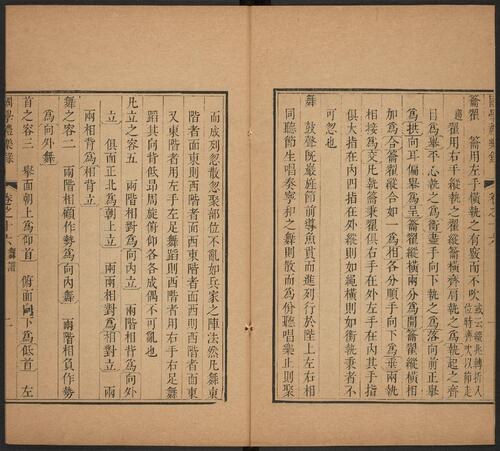 籥翟 籥用左手橫執之有竅而不吹
翟用右手縱執之翟縱籥橫齊肩執之為執起之齊
目為舉平心執之為衡盡手向下執之為落向前正舉
為拱向耳偏舉為呈籥翟縱橫兩分為開籥翟縱橫相
加為合籥翟縱合如一為相各分順手向下為垂兩執
相接為交凡執籥秉翟俱右手在外左手在內其手指
俱大指在內四指在外縱則如繩橫則如衡執秉者不
可忽也
舞 鼓聲既嚴旌節前導魚貫而進列行於陛上左右相
同聽節生唱奏寧和之舞則散而為佾聽唱樂止則聚
而成列忽散忽聚部位不亂如兵家之陣法然凡舞東
階者面東則西階者面西東階者面西則西階者面東
又東階者用左手左足舞蹈則西階者用右手右足舞
蹈其向背低昂周旋俯仰各各成偶不可亂也
凡立之容五 兩階相對為向內立 兩階相背為向外
立 俱面正北為朝上立 兩兩相對為相對立 兩
兩相背為相背立
舞之容二 兩階相顧作勢為向內舞 兩階相負作勢
為向外舞
首之容三 舉面朝上為仰首 俯面向下為低首 左
國學禮樂錄 卷之十六 舞譜 二